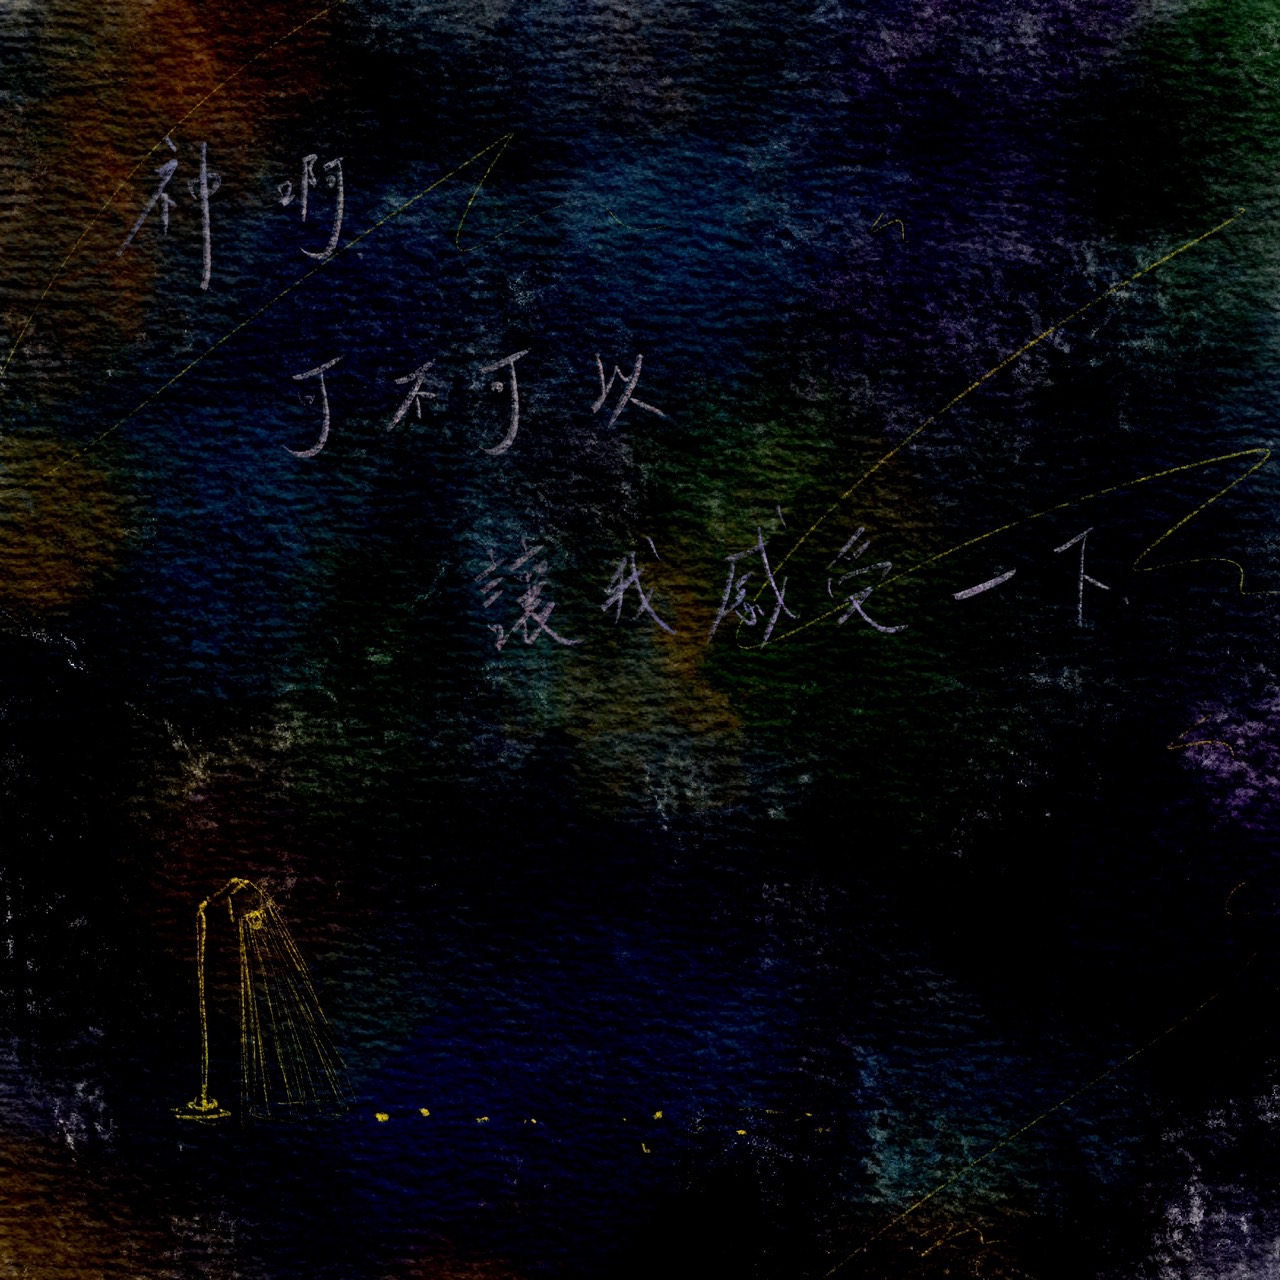 神啊
可不可以
讓我感受一下